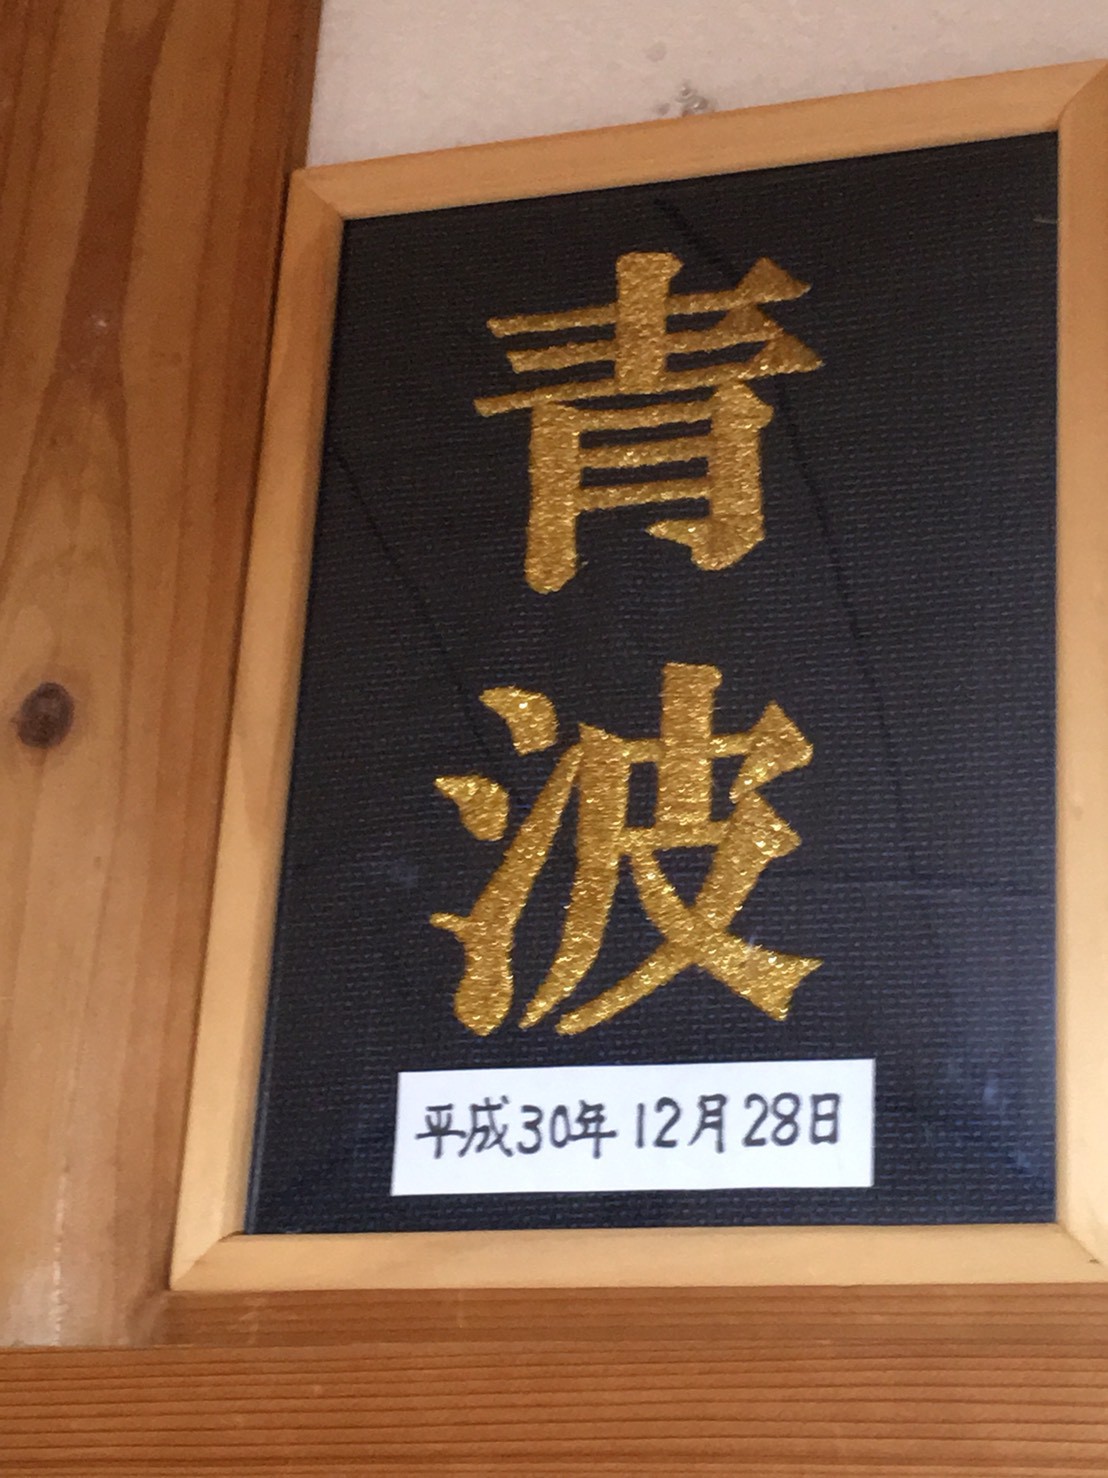 青波
平成30年12月28日